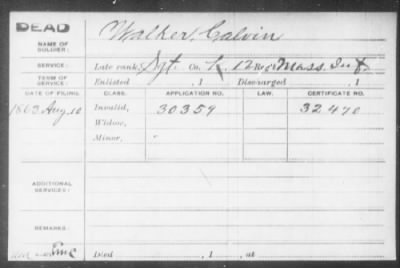 DEAD
NAME OF SOLDIER:
Walker, Calvin
SERVICE:
Late rank, Sgt. Co. K, 12 Reg't Mass. Inf
TERM OF SERVICE:
Enlisted , 1 Discharged , 1
DATE OF FILING. CLASS. APPLICATION NO. LAW. CERTIFICATE NO.
1863 Aug 10 Invalid, 30359 32470
Widow,
Minor,
ADDITIONAL SERVICES:
REMARKS:
Died , 1 , at